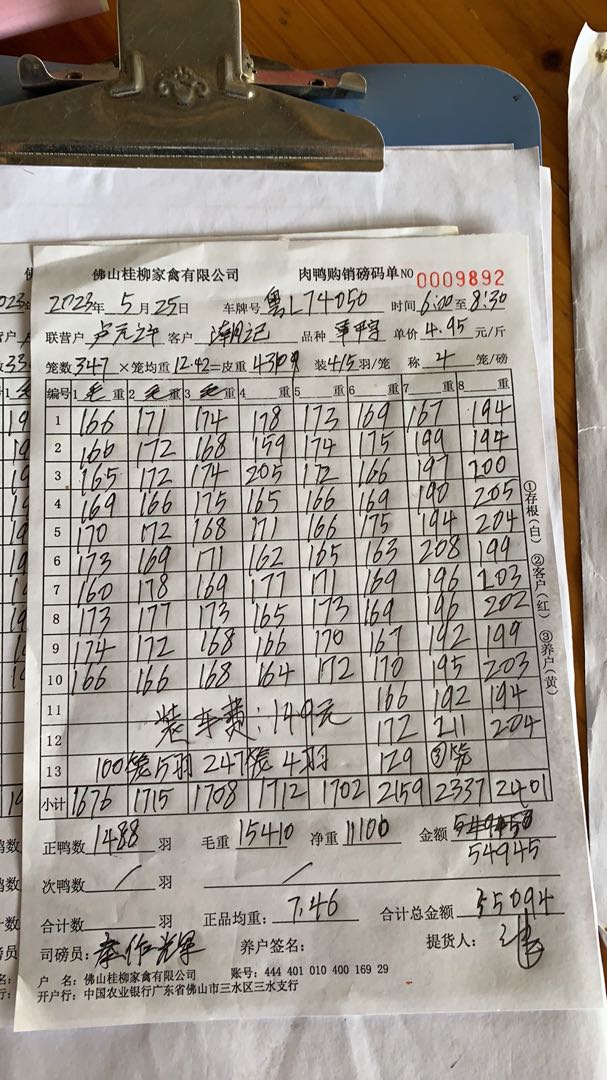 佛山桂柳家禽有限公司 肉鸭购销磅码单 NO 0009892
2023年 5月25日 车牌号 粤L74050 时间 6:00至8:30
联营户 卢元之午 客户 品种 单价 4.95 元/斤
笼数 347 ×笼均重 12.42=皮重 4310 装4/5羽/笼 称 4 笼/磅
编号 1 毛 重 2 毛 重 3 毛 重 4 重 5 重 6 重 7 重 8 重
1 166 171 174 178 173 169 167 194
2 160 172 168 159 174 175 199 194
3 165 172 174 205 172 166 197 200
4 169 166 175 165 166 169 190 205
5 170 172 168 171 166 175 194 204
6 173 169 171 162 165 163 208 199
7 160 178 169 177 171 169 196 203
8 173 177 173 165 173 169 196 202
9 174 172 168 166 170 167 192 199
10 166 166 168 164 172 170 195 203
11 装车费:149元 166 192 194
12 172 211 204
13 100笼5羽 247笼4羽 129 ③笼
小计 1676 1715 1708 1712 1702 2159 2337 2401
①存根(白) ②客户(红) ③养户(黄)
正鸭数 1488 羽 毛重 15410 净重 11100 金额
54945
次鸭数 / 羽 /
合计数 羽 正品均重: 7.46 合计总金额 55094
司磅员: 养户签名: 提货人:
户 名: 佛山桂柳家禽有限公司 账号: 444 401 010 400 169 29
开户行: 中国农业银行广东省佛山市三水区三水支行